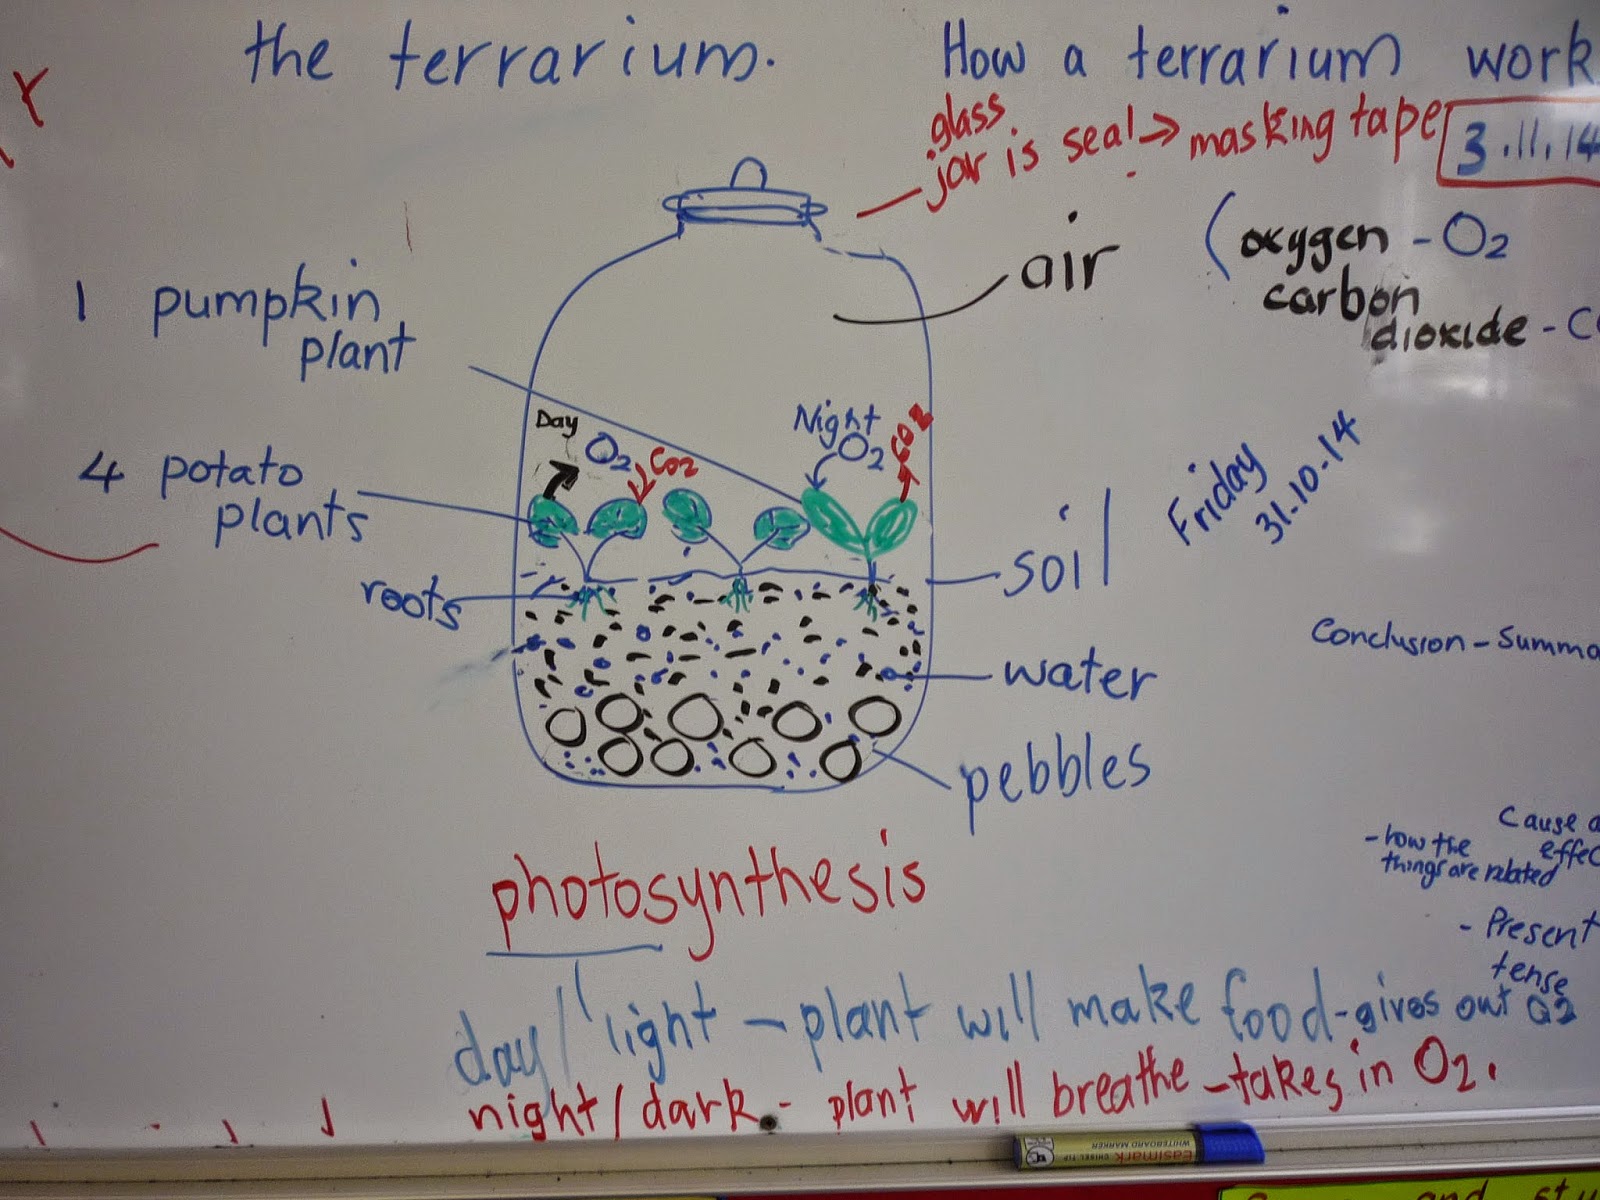 the terrarium.
How a terrarium work
glass
jar is seal → masking tape
3.11.14
air
(oxygen - O2
carbon
dioxide - C
1 pumpkin
plant
Day
O2
CO2
Night
O2
CO2
4 potato
plants
roots
Friday
31.10.14
soil
water
pebbles
Conclusion - Summa
Cause a
effec
- how the
things are related
- Present
tense
photosynthesis
day/light - plant will make food - gives out O2
night/dark - plant will breathe - takes in O2.
Easimark
WHITEBOARD MARKER
CHISEL TIP
and stu